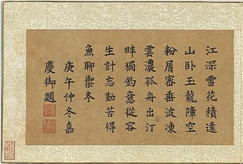 江深雪花積遠
山卧玉龍障空
粉屑審垂波凍
雲濃孤舟出汀
畔獨釣意從容
生計忘勤苦得
魚聊禦冬
庚午仲冬嘉
慶御題